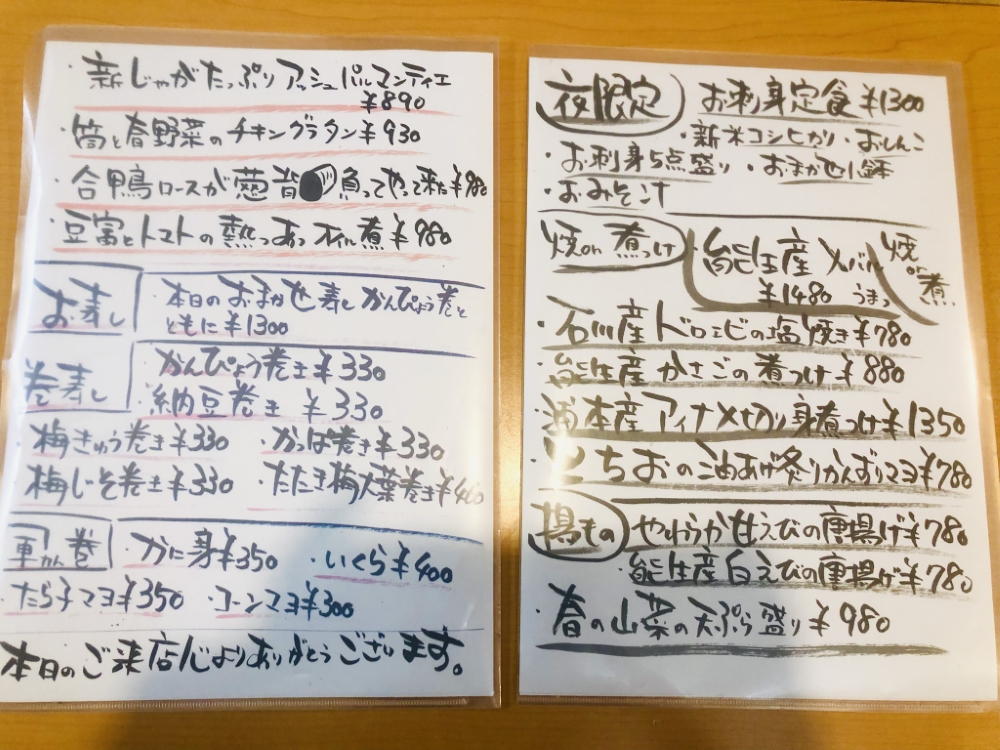 ・新じゃがたっぷりアッシュパルマンティエ
¥890
・筍と春野菜のチキングラタン¥930
・合鴨ロースが葱背負ってやって来た¥880
・豆富とトマトの熱つあつオイル煮¥980
お寿し
・本日のおまかせ寿しかんぴょう巻と
ともに¥1300
巻寿し
かんぴょう巻き¥330
納豆巻き ¥330
・梅きゅう巻き¥330 ・かっぱ巻き¥330
・梅じそ巻き¥330 ・たたき梅大葉巻き¥400
軍かん巻
・かに身¥350 ・いくら¥400
・たら子マヨ¥350 ・コーンマヨ¥300
本日のご来店心よりありがとうございます。
夜限定
お刺身定食¥1300
・新米コシヒカリ・おしんこ
・お刺身5点盛り ・おまかせ小鉢
・おみそ汁
焼or煮つけ
能生産メバル
焼or煮
¥1480 うまっ
・石川産ドロエビの塩焼き¥780
・能生産かさごの煮つけ¥880
・浦本産アイナメ切り身煮つけ¥1350
・とちおの油あげ炙りかんずりマヨ¥780
揚もの
やわらか甘えびの唐揚げ¥780
・能生産白えびの唐揚げ¥780
・春の山菜の天ぷら盛り¥980